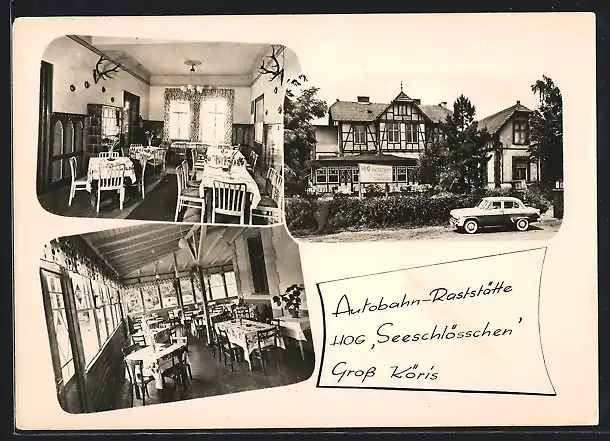 Autobahn-Raststätte
HOG ‚Seeschlösschen'
Groß Köris